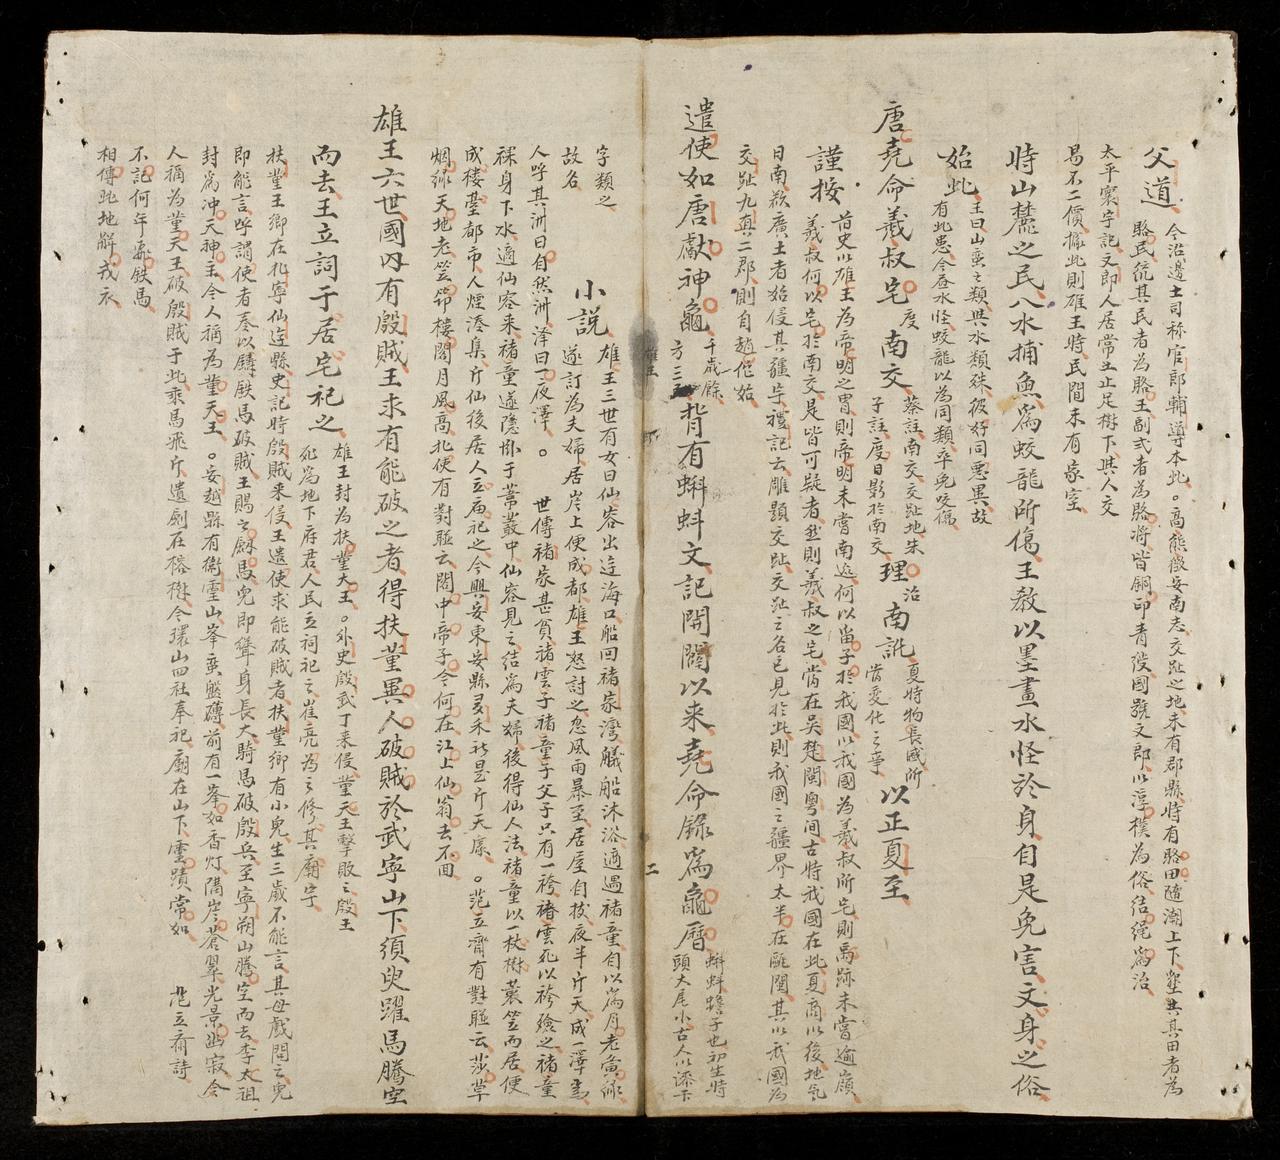 父道今治邊土司称官郎輔導本此。高熊徵安南志交趾之地未有郡縣時有雒田隨潮上下墾其田者為
雒民統其民者為雒王副弍者為雒將皆銅印青綬國號文郎以淳樸為俗結繩為治
太平寰宇記文郎人居常止足樹下其人交
易不二價據此則雄王時民間未有家室
時山麓之民入水捕魚為蛟龍所傷王教以墨畫水怪於身自是免害文身之俗
始此王曰山蛮之類與水類殊彼好同惡異故
有此患令畫水怪蛟龍以為同類卒免咬傷
唐堯命羲叔宅度南交蔡註南交交趾地朱
子註度日影於南交理治南訛夏時物長盛所
當変化之事以正夏至
謹按前史以雄王為帝明之胄則帝明未嘗南巡何以留子於我國以我國為羲叔所宅則禹跡未嘗逾嶺
羲叔何以宅於南交是皆可疑者然則羲叔之宅當在吴楚閩粵间古時我國在此夏商以後地気
日南欲廣土者始侵其疆乎禮記云雕題交趾交趾之名已見於此則我國之疆界太半在甌閩其以我國為
交趾九真二郡則自趙佗始
遣使如唐獻神龜千歲餘
方三五背有蝌蚪文記開闢以来堯命錄為龜曆蝌蚪蟾子也初生時
頭大尾小古人以漆下
字類之
故名
小說雄王三世有女曰仙容出遊海口船囬褚家灣艤船沐浴適遇褚童自以為月老魚緣
遂訂為夫婦居岸上便成都雄王怒討之忽風雨暴至居屋自拔夜半斤天成一澤焉
人呼其洲曰自然洲澤曰一夜澤。世傳褚家甚貧褚雲子褚童子父子只有一袴褚雲死以袴殮之褚童
裸身下水適仙容来褚童遂隱㧾于葦叢中仙容見之结為夫婦後得仙人法褚童以一杖樹蓑笠而居便
成樓臺都市人煙湊集斤仙後居人立庙祀之今興安東安縣多禾社是斤天處。范立齋有對聮云莎草
烟绿天地老笠笻樓閣月風高北使有對聮云閣中帝子今何在江上仙翁去不囬
雄王六世國内有殷賊王求有能破之者得扶董異人破賊於武寧山下須臾躍馬騰空
而去王立詞于居宅祀之雄王封為扶董大王。外史殷武丁来侵董天王擊敗之殷王
死為地下府君人民立祠祀之崔亮為之修其廟宇
扶董王鄉在北寧仙遊縣史記時殷賊来侵王遣使求能破賊者扶董鄉有小兒生三歲不能言其母戲問之兒
即能言呼謂使者奏以鑄鉄馬破賊王賜之劎馬兒即聳身長大騎馬破殷兵至寧朔山騰空而去李太祖
封為冲天神王今人稱為董天王。安越縣有衛灵山峯蛮盤礴前有一峯如香灯隅岸蒼翠光景幽寂今
人稱為董天王破殷賊于此乘馬飛斤遺劎在榕樹今環山四社奉祀廟在山下灵蹟常如范立齋詩
不記何年冊鉄馬
相傳此地觧戎衣
雄王
二